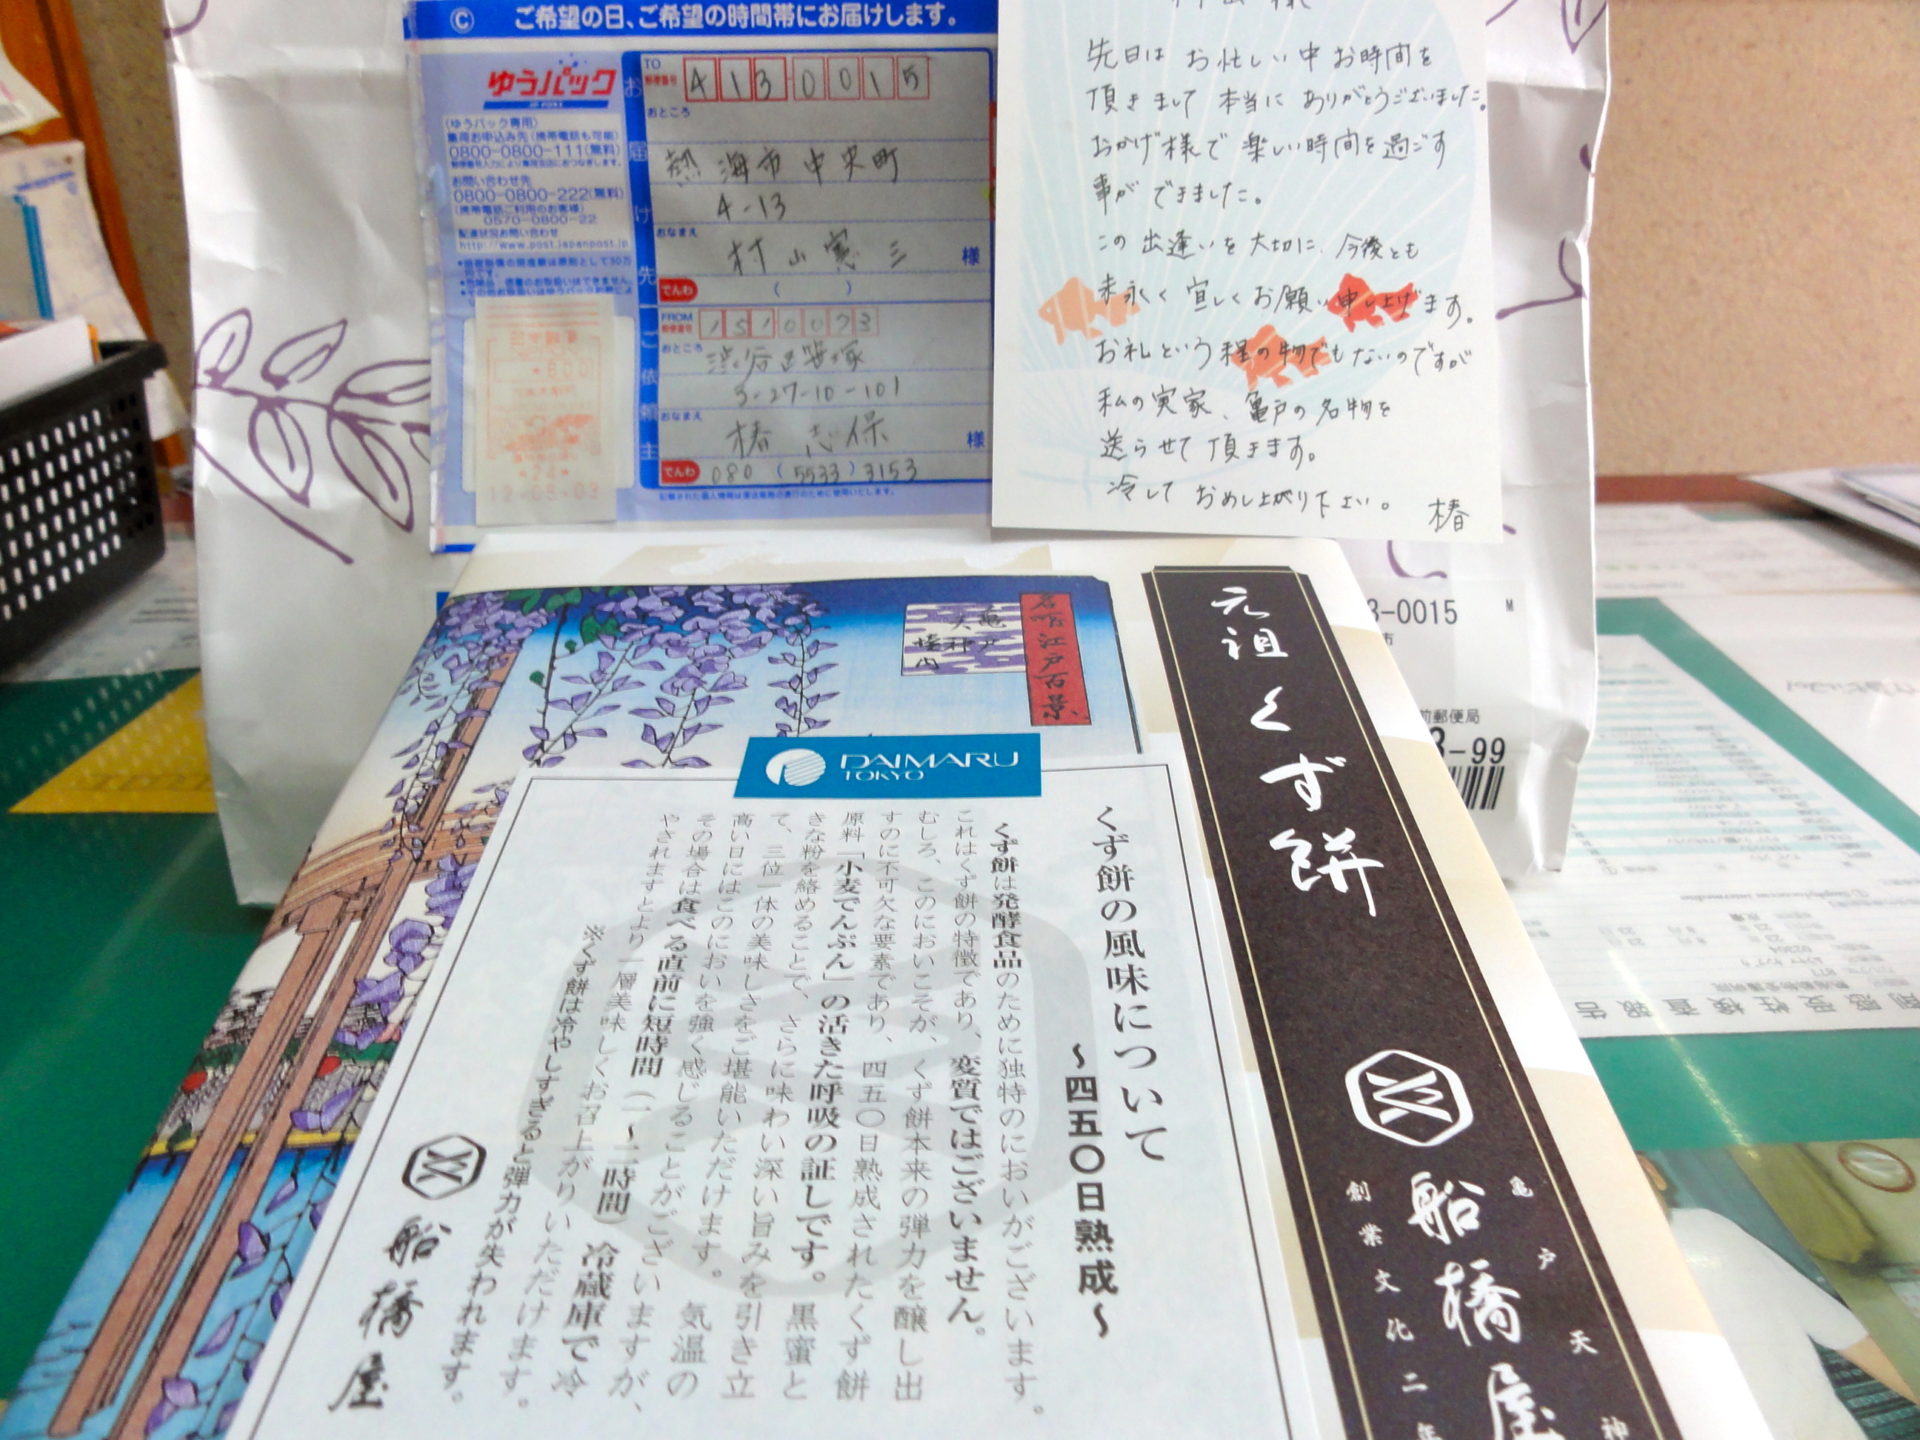 ご希望の日、ご希望の時間帯にお届けします。
ゆうパック
(ゆうパック専用)
集荷お申込み先(携帯電話も可能)
0800-0800-111(無料)
お問い合わせ先
0800-0800-222(無料)
(携帯電話ご利用のお客様)
0570-0800-22
配達状況お問い合わせ
http://www.post.japanpost.jp
お届け先
TO
郵便番号
4130015
おところ
熱海市中央町
4-13
おなまえ
村山憲三 様
でんわ ( )
ご依頼主
FROM
郵便番号
1510073
おところ
渋谷区笹塚
3-27-10-101
おなまえ
椿 志保 様
でんわ 080 (5533) 3153
先日は お忙しい中 お時間を
頂きまして 本当に ありがとうございました。
おかげ様で 楽しい時間を過ごす
事が できました。
この 出逢いを 大切に、今後とも
末永く 宜しくお願い申し上げます。
お礼という程の物でもないのですが
私の実家、亀戸の名物を
送らせて 頂きます。
冷して おめし上がり下さい。
椿
3-0015
市
前郵便局
3-99
名所江戸百景
亀戸
天神
境内
元祖 くず餅
船橋屋
亀戸天神
創業文化二年
DAIMARU
TOKYO
くず餅の風味について
~四五〇日熟成~
くず餅は発酵食品のために独特のにおいがございます。
これはくず餅の特徴であり、変質ではございません。
むしろ、このにおいこそが、くず餅本来の弾力を醸し出
すのに不可欠な要素であり、四五〇日熟成されたくず餅
原料「小麦でんぷん」の活きた呼吸の証しです。黒蜜と
きな粉を絡めることで、さらに味わい深い旨みを引き立
て、三位一体の美味しさをご堪能いただけます。気温の
高い日にはこのにおいを強く感じることがございますが、
その場合は食べる直前に短時間(一~二時間)冷蔵庫で冷
やされますとより一層美味しくお召上がりいただけます。
※くず餅は冷やしすぎると弾力が失われます。
船橋屋